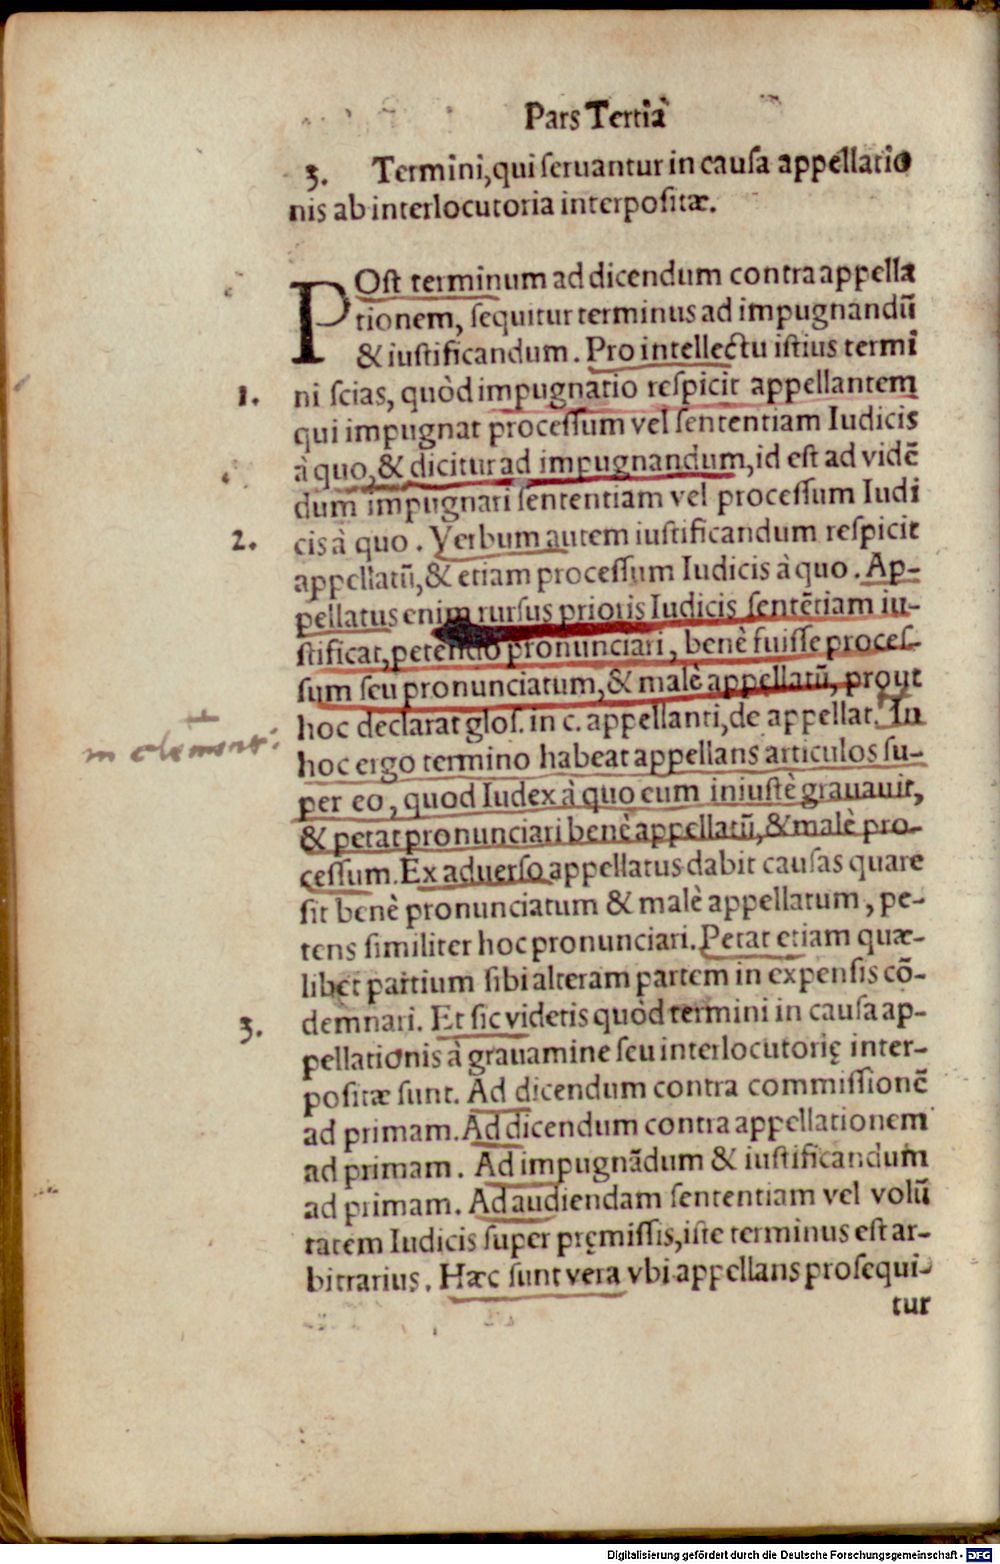 Pars Tertia
3. Termini, qui seruantur in causa appellatio
nis ab interlocutoria interpositæ.
POst terminum ad dicendum contra appella
tionem, sequitur terminus ad impugnandū
& iustificandum. Pro intellectu istius termi
1. ni scias, quòd impugnatio respicit appellantem
qui impugnat processum vel sententiam Iudicis
à quo, & dicitur ad impugnandum, id est ad vidē
dum impugnari sententiam vel processum Iudi
2. cis à quo. Verbum autem iustificandum respicit
appellatū, & etiam processum Iudicis à quo. Ap-
pellatus enim rursus prioris Iudicis sentētiam iu-
stificat, petendo pronunciari, benè fuisse proces-
sum seu pronunciatum, & malè appellatū, prout
hoc declarat glos. in c. appellanti, de appellat. In
in clement:
hoc ergo termino habeat appellans articulos su-
per eo, quod Iudex à quo eum iniustè grauauit,
& petat pronunciari benè appellatū, & malè pro-
cessum. Ex aduerso appellatus dabit causas quare
sit benè pronunciatum & malè appellatum, pe-
tens similiter hoc pronunciari. Petat etiam quæ-
libet partium sibi alteram partem in expensis cō-
3. demnari. Et sic videtis quòd termini in causa ap-
pellationis à grauamine seu interlocutorię inter-
positæ sunt. Ad dicendum contra commissionē
ad primam. Ad dicendum contra appellationem
ad primam. Ad impugnādum & iustificandum
ad primam. Ad audiendam sententiam vel volū
tatem Iudicis super pręmissis, iste terminus est ar-
bitrarius. Hæc sunt vera vbi appellans prosequi-
tur
Digitalisierung gefördert durch die Deutsche Forschungsgemeinschaft - DFG